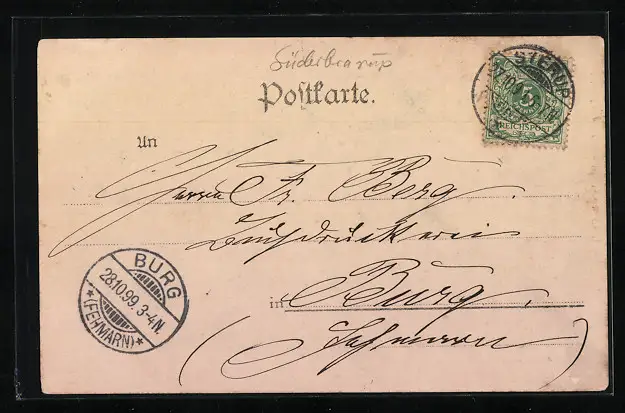 Süderbrarup
Postkarte.
STERUP
5
REICHSPOST
An
Herrn Fr. Borg.
Buchdruckerei
in Burg.
(Fehmarn)
BURG
28.10.99.3-4N.
*(FEHMARN)*